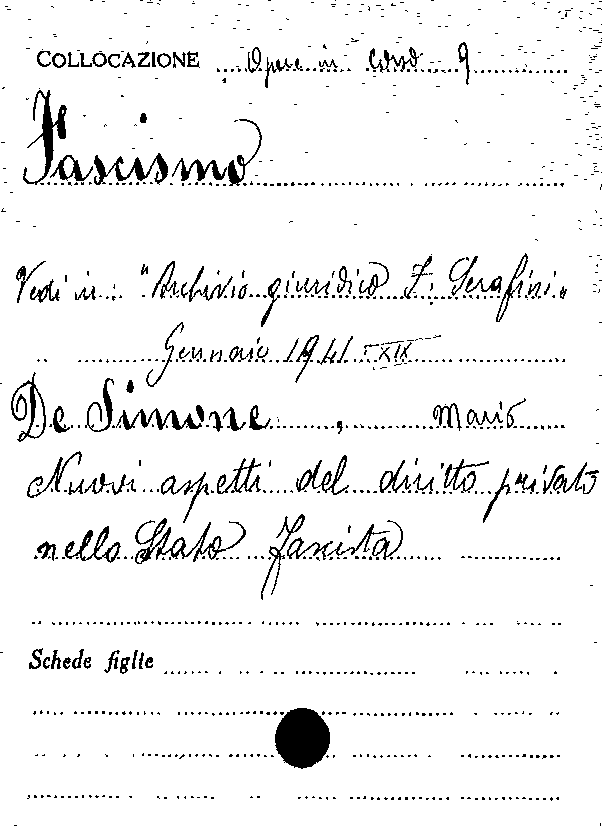 COLLOCAZIONE Opere in corso 9
Fascismo
Vedi in: "Archivio giuridico F. Serafini"
Gennaio 1941 - XIX
De Simone, Mario
Nuovi aspetti del diritto privato
nello Stato Fascista
Schede figlie